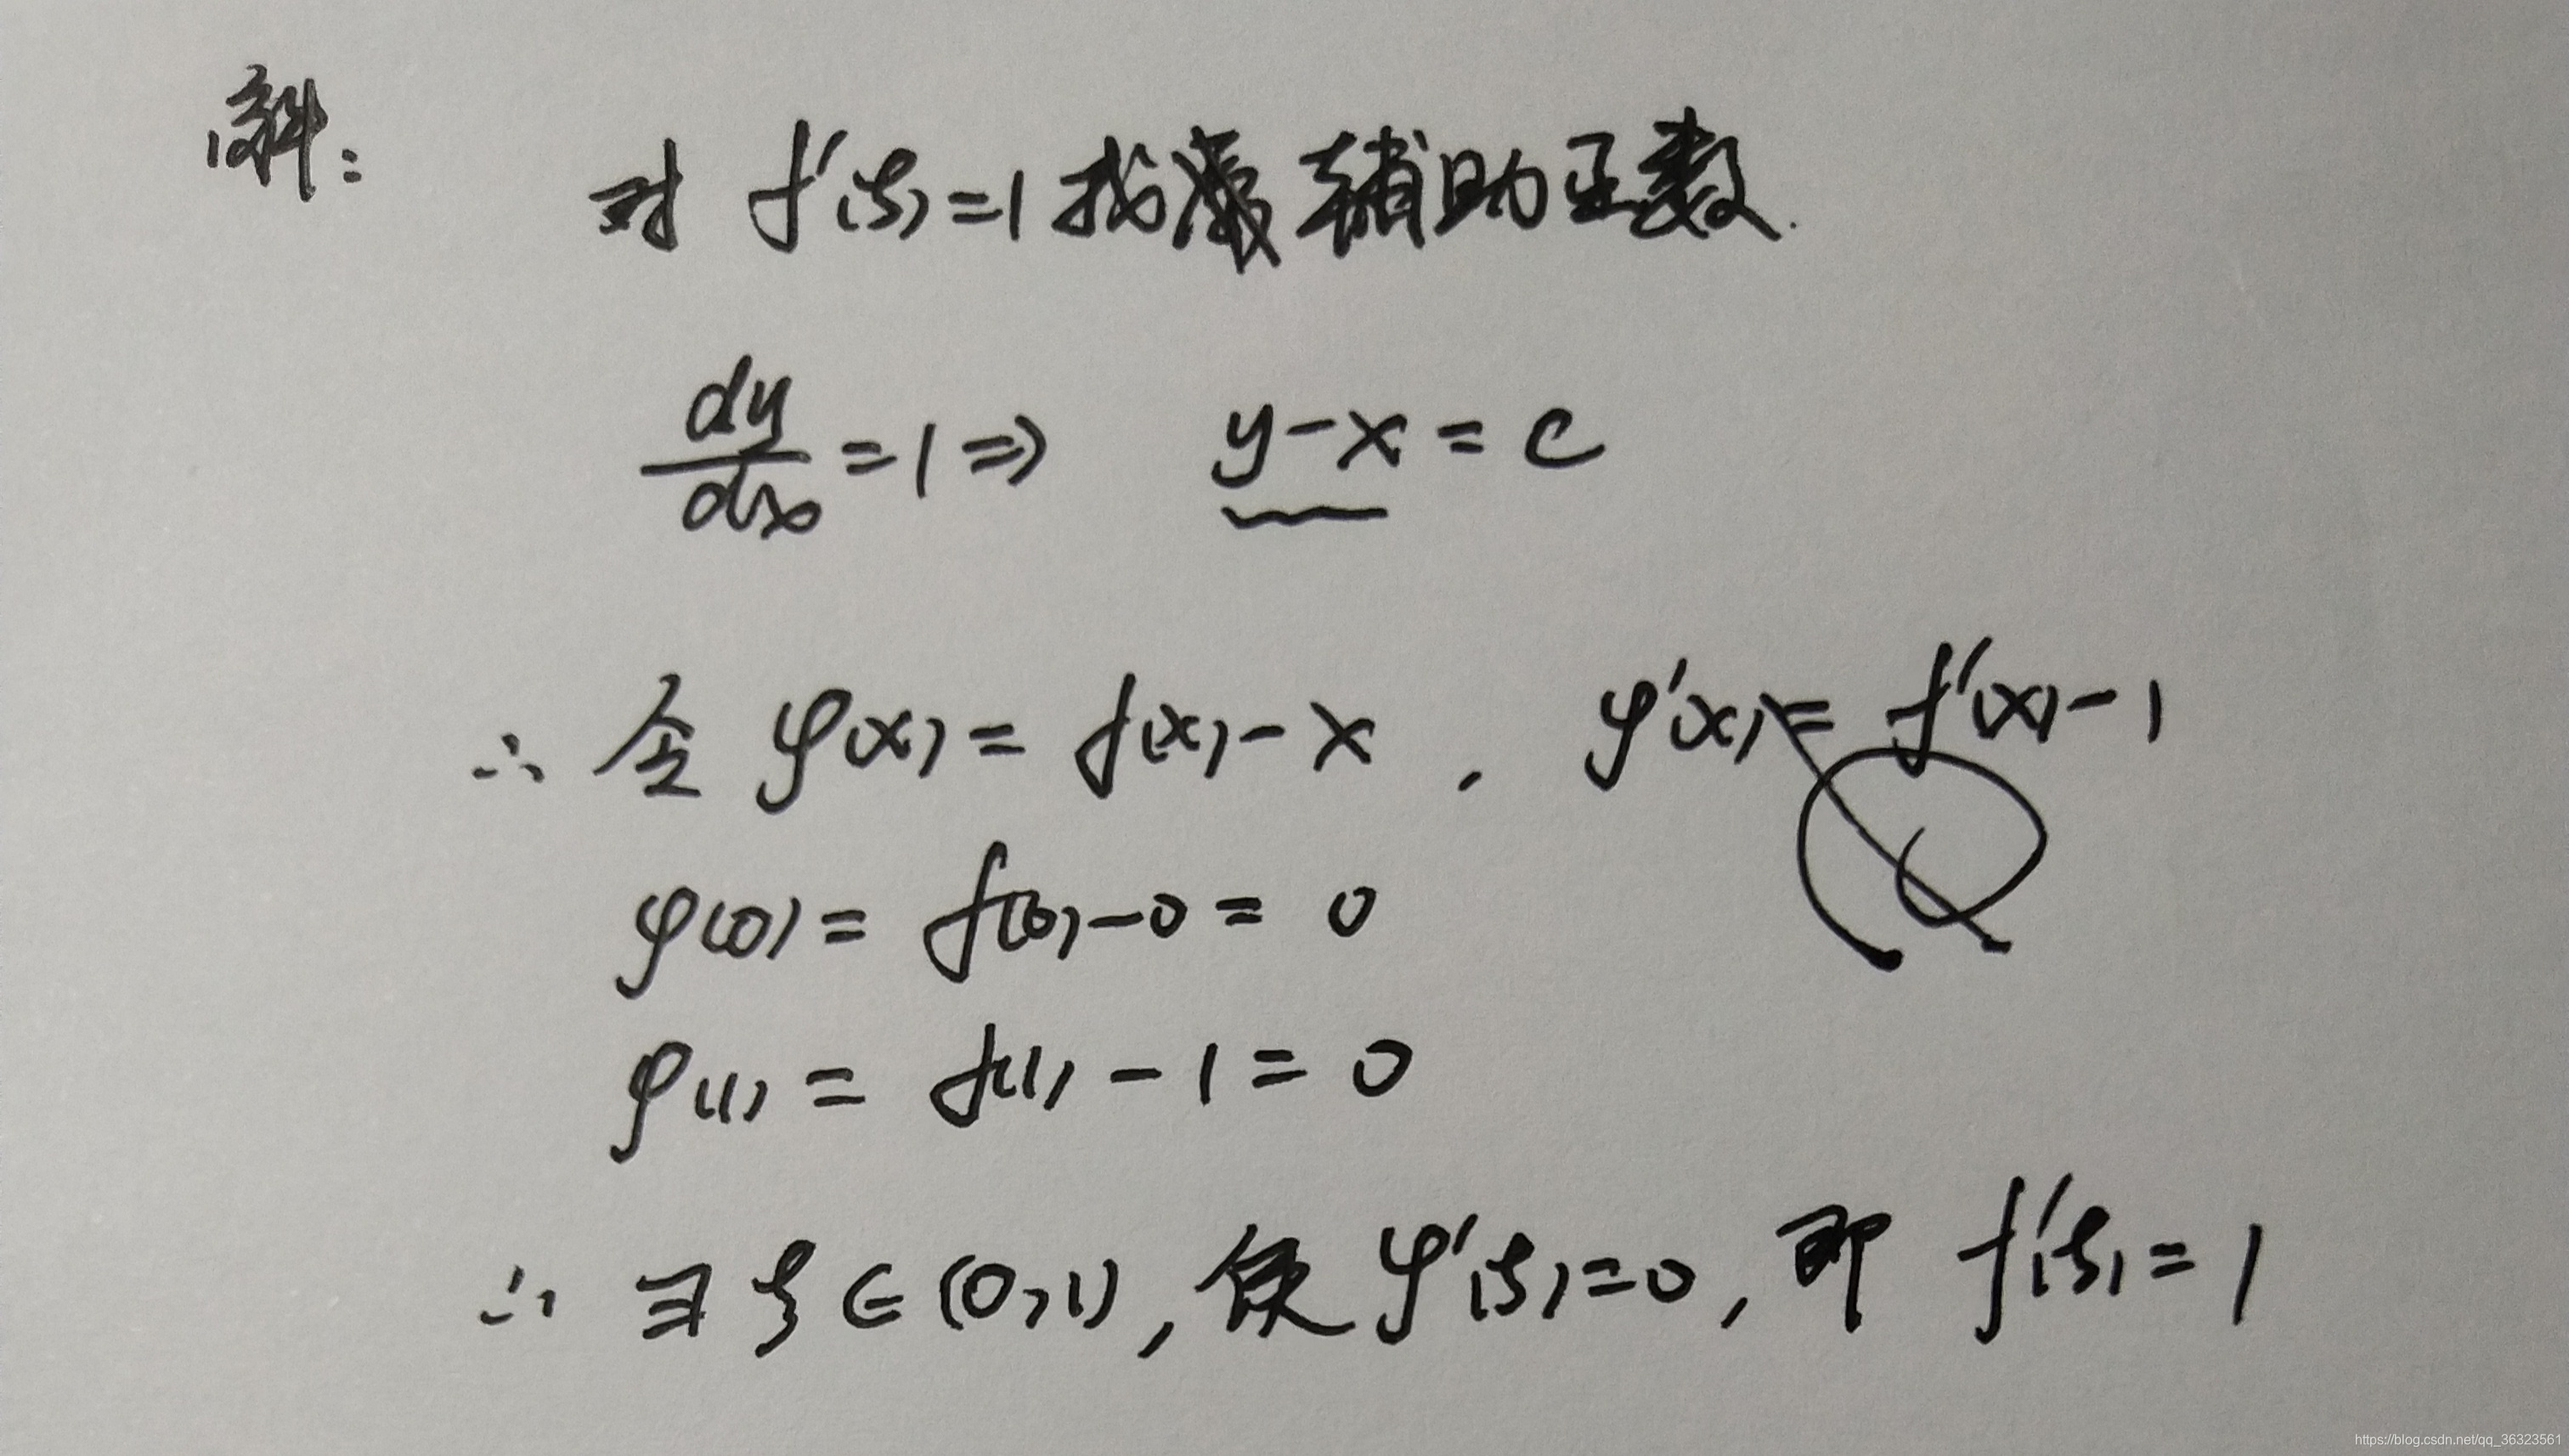 解:
对 f'(ξ)=1 找 辅助函数.
dy/dx =1 ⇒ y-x = c
∴ 令 φ(x) = f(x) - x , φ'(x) = f'(x) - 1
φ(0) = f(0) - 0 = 0
φ(1) = f(1) - 1 = 0
∴ ∃ ξ ∈ (0,1), 使 φ'(ξ)=0, 即 f'(ξ) = 1
https://blog.csdn.net/qq_36323561